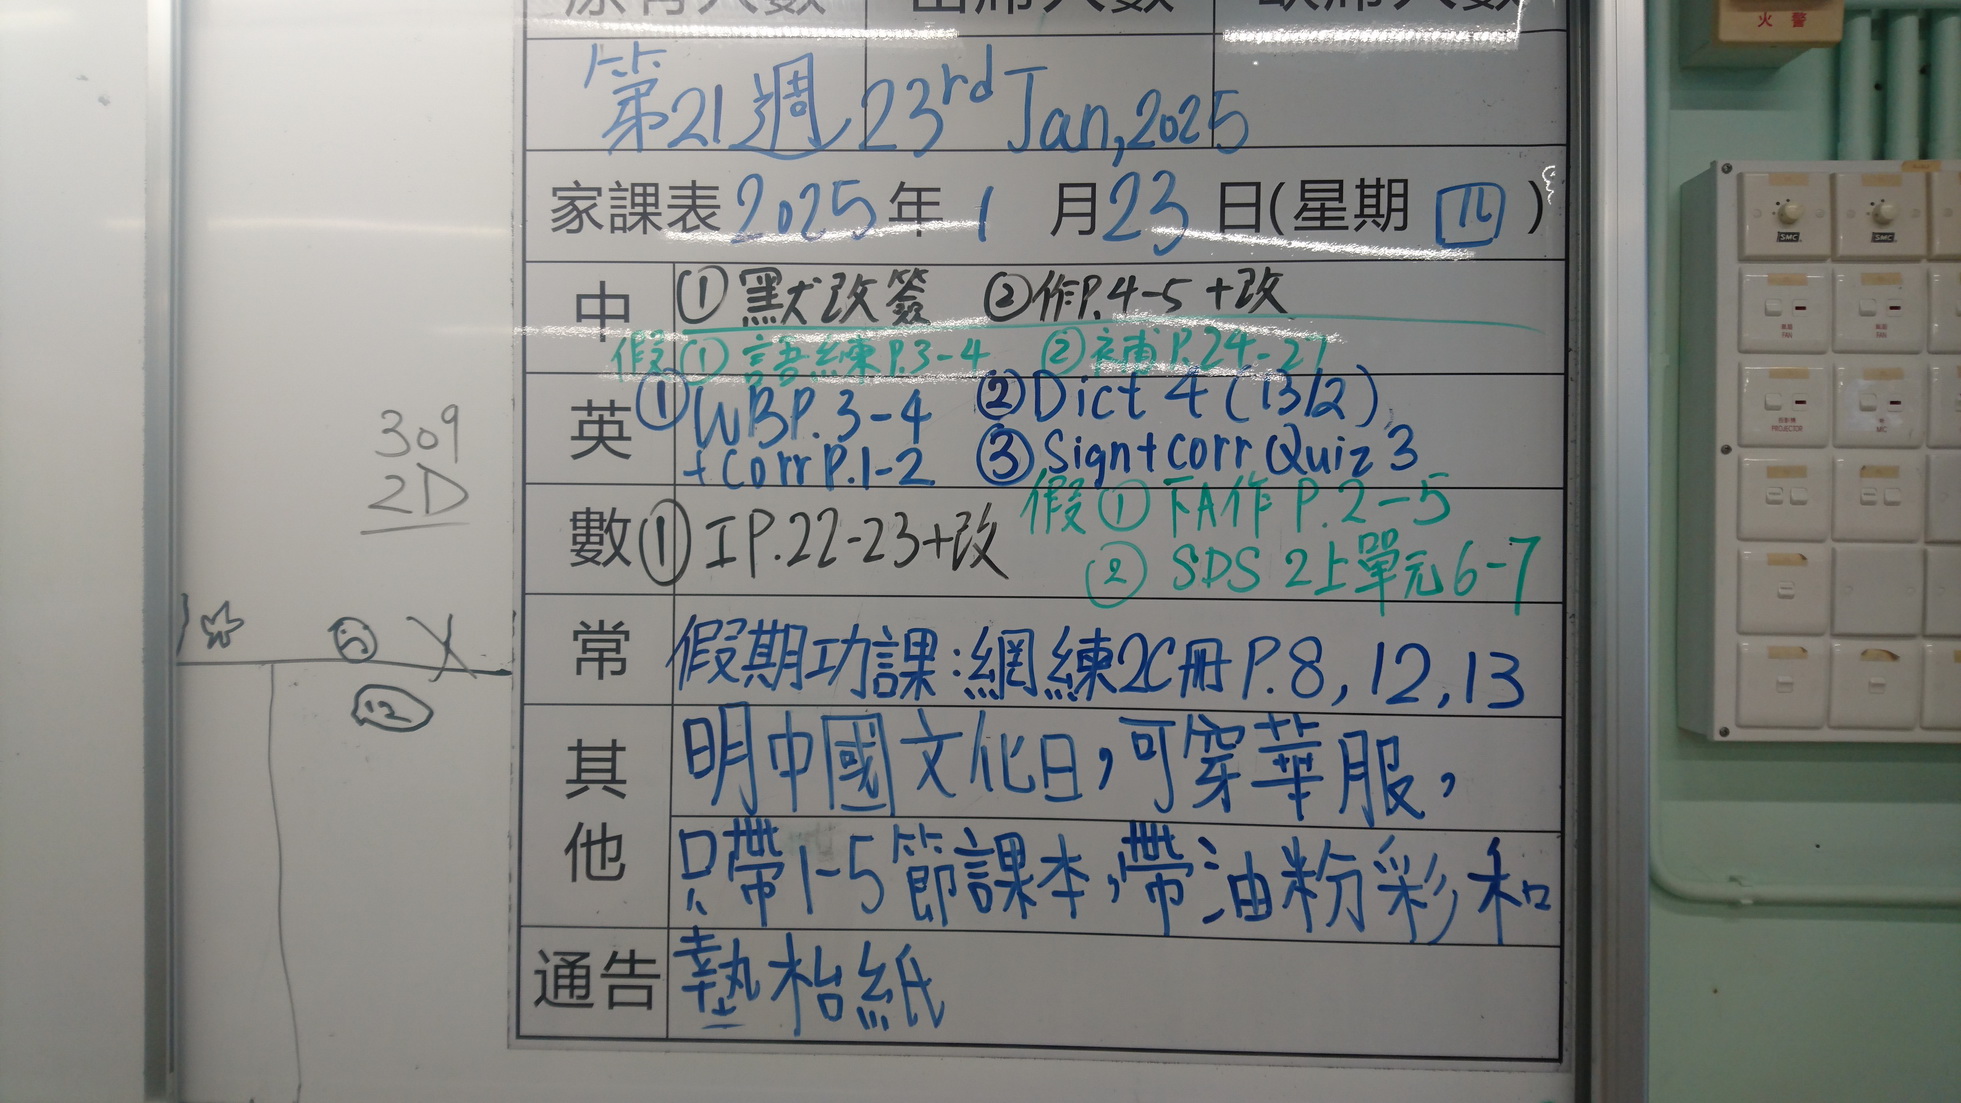 原有人數 出席人數 缺席人數
第21週 23rd Jan, 2025
家課表 2025 年 1 月 23 日(星期 四 )
中 ① 默改簽 ②作P.4-5+改
假 ① 語練P.3-4 ② 補P.24-27
英 ① WB P.3-4 ② Dict 4 (13/2)
+Corr P.1-2 ③ Sign+corr Quiz 3
數 ① IP.22-23+改 假 ① 下A作 P.2-5
② SDS 2上單元6-7
常 假期功課:網練2C冊P.8, 12, 13
其他 明中國文化日,可穿華服,
只帶1-5節課本,帶油粉彩和
通告 墊枱紙
309
2D
12
火警
SMC SMC
FAN FAN
PROJECTOR MIC